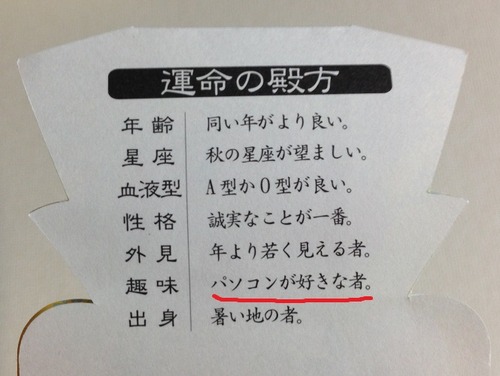 運命の殿方
年齢 同い年がより良い。
星座 秋の星座が望ましい。
血液型 A型かO型が良い。
性格 誠実なことが一番。
外見 年より若く見える者。
趣味 パソコンが好きな者。
出身 暑い地の者。